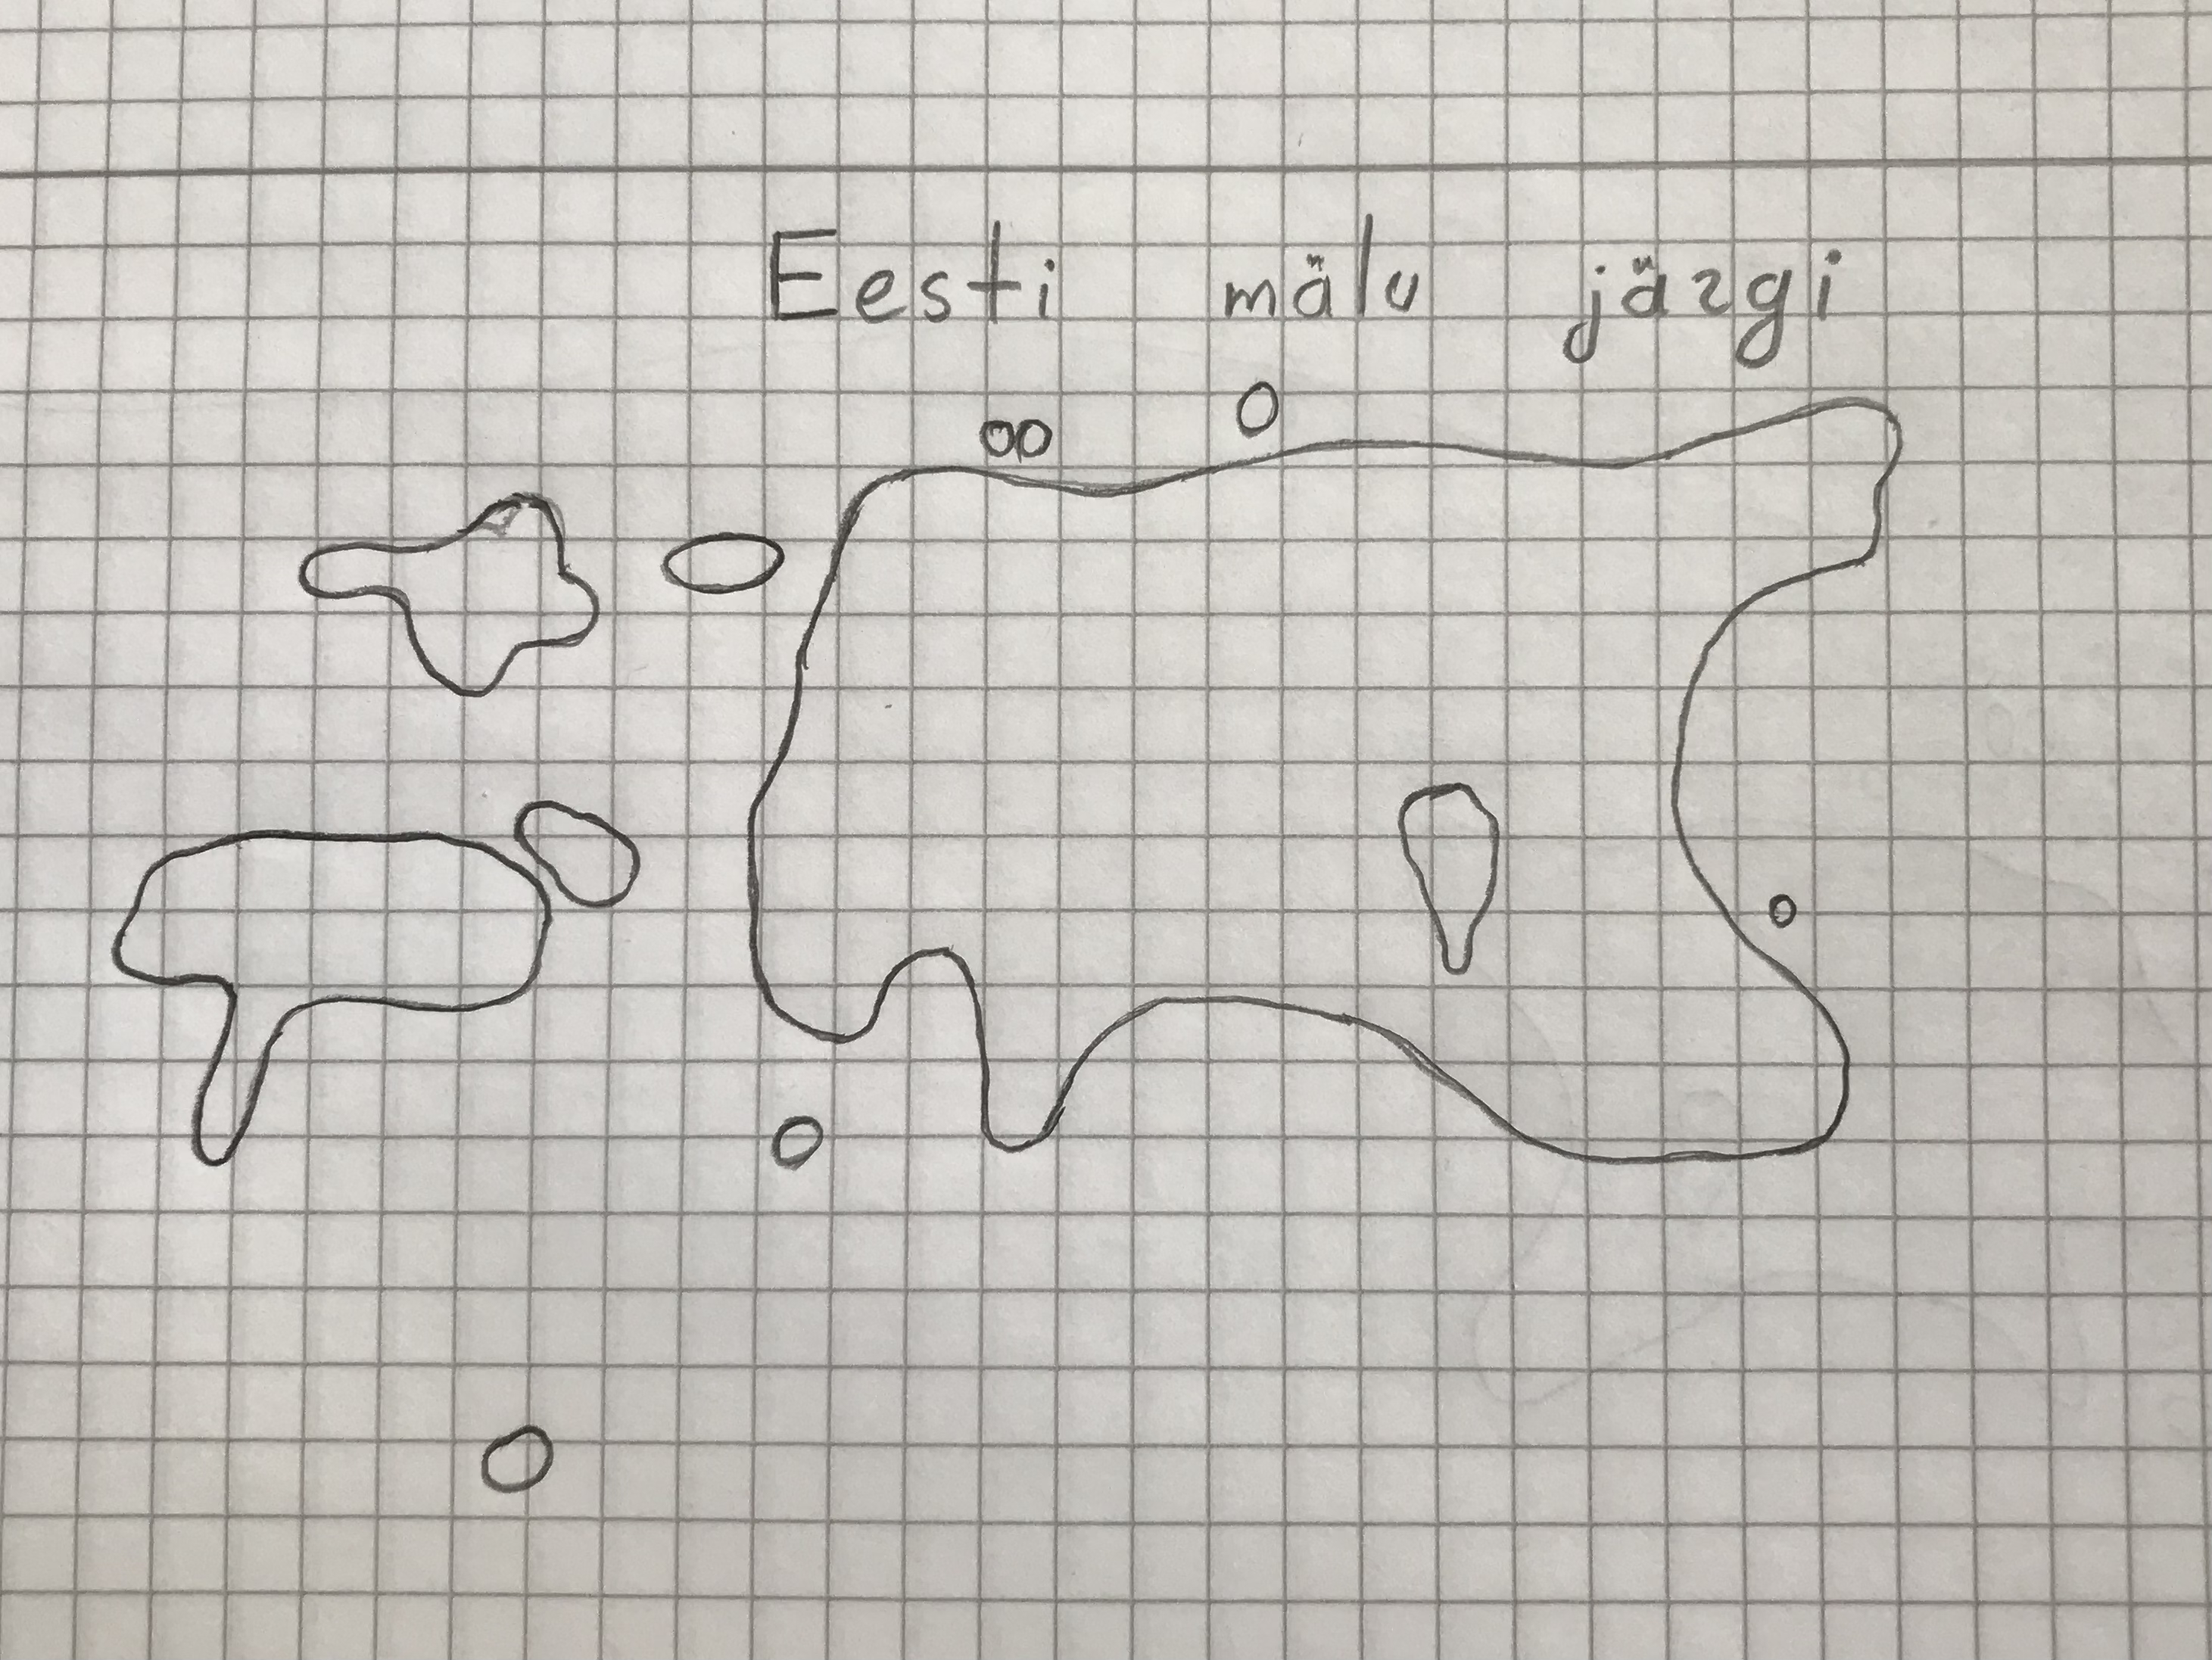 Eesti mälu järgi